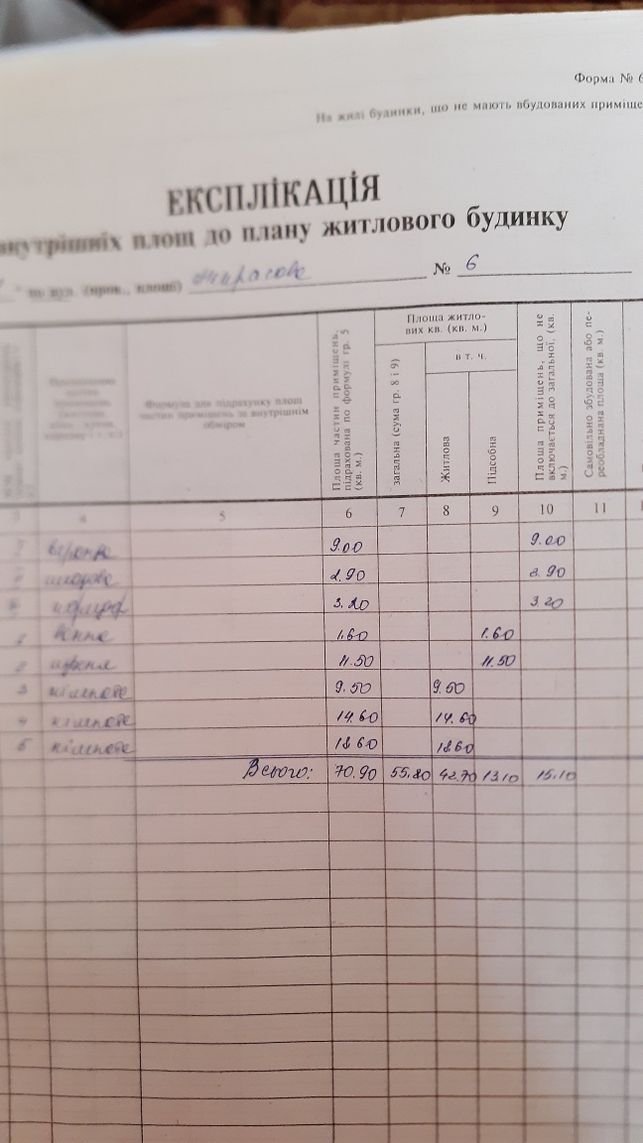 Форма № 6
На жилі будинки, що не мають вбудованих приміще
ЕКСПЛІКАЦІЯ
внутрішніх площ до плану житлового будинку
по вул. (пров., площі) № 6
Формула для підрахунку площі частин приміщень за внутрішнім обміром
Площа частин приміщень, підрахована по формулі гр. 5 (кв. м.)
Площа житлових кв. (кв. м.)
загальна (сума гр. 8 і 9)
в т. ч.
Житлова
Підсобна
Площа приміщень, що не включається до загальної, (кв. м.)
Самовільно збудована або переобладнана площа (кв. м.)
4 5 6 7 8 9 10 11
веранда 9.00 9.00
2.90 2.90
3.20 3.20
1 1.60 1.60
2 кухня 11.50 11.50
3 кімната 9.50 9.50
4 кімната 14.60 14.60
5 кімната 18.60 18.60
Всього: 70.90 55.80 42.70 13.10 15.10